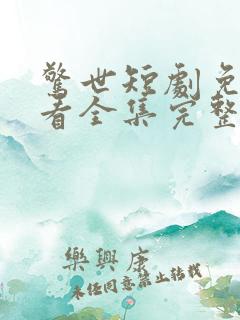 驚世短劇免
看全集完整
樂興康
未经同意禁止转载